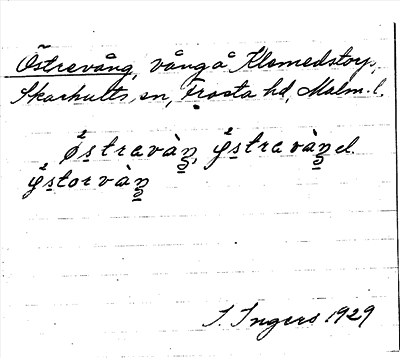 Östrevång, vång å Klemedstorp,
Skarhults sn, Frosta hd, Malm. l.
ø̂stravàn̥, ŷstravàn̥ el.
ŷstorvàn̥
I. Ingers 1929